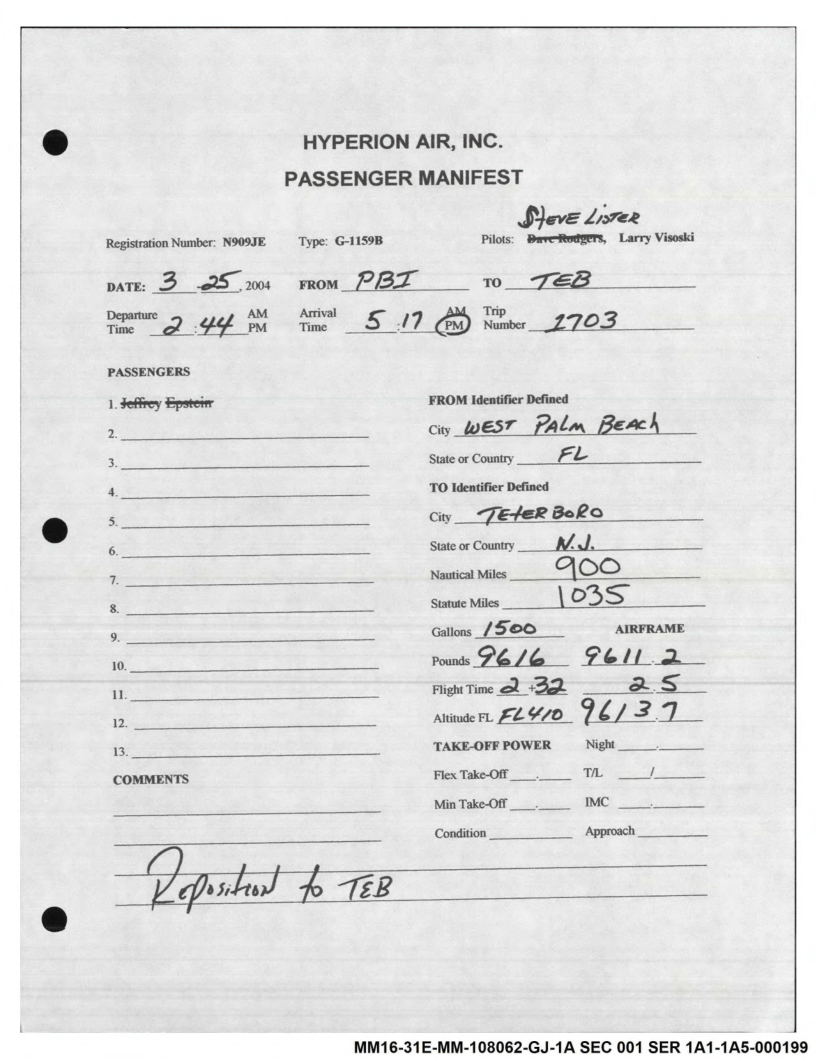 HYPERION AIR, INC.
PASSENGER MANIFEST
STEVE LISTER
Registration Number: N909JE Type: G-1159B Pilots: Dave Rodgers, Larry Visoski
DATE: 3 -25, 2004 FROM PBI TO TEB
Departure Time 2:44 AM PM Arrival Time 5:17 AM PM Trip Number 1703
PASSENGERS
1. Jeffrey Epstein
2.
3.
4.
5.
6.
7.
8.
9.
10.
11.
12.
13.
COMMENTS
FROM Identifier Defined
City WEST PALM BEACH
State or Country FL
TO Identifier Defined
City TETERBORO
State or Country N.J.
Nautical Miles 900
Statute Miles 1035
Gallons 1500 AIRFRAME
Pounds 9616 9611.2
Flight Time 2+32 2.5
Altitude FL FL410 9613.7
TAKE-OFF POWER Night
Flex Take-Off T/L /
Min Take-Off IMC
Condition Approach
Reposition to TEB
MM16-31E-MM-108062-GJ-1A SEC 001 SER 1A1-1A5-000199